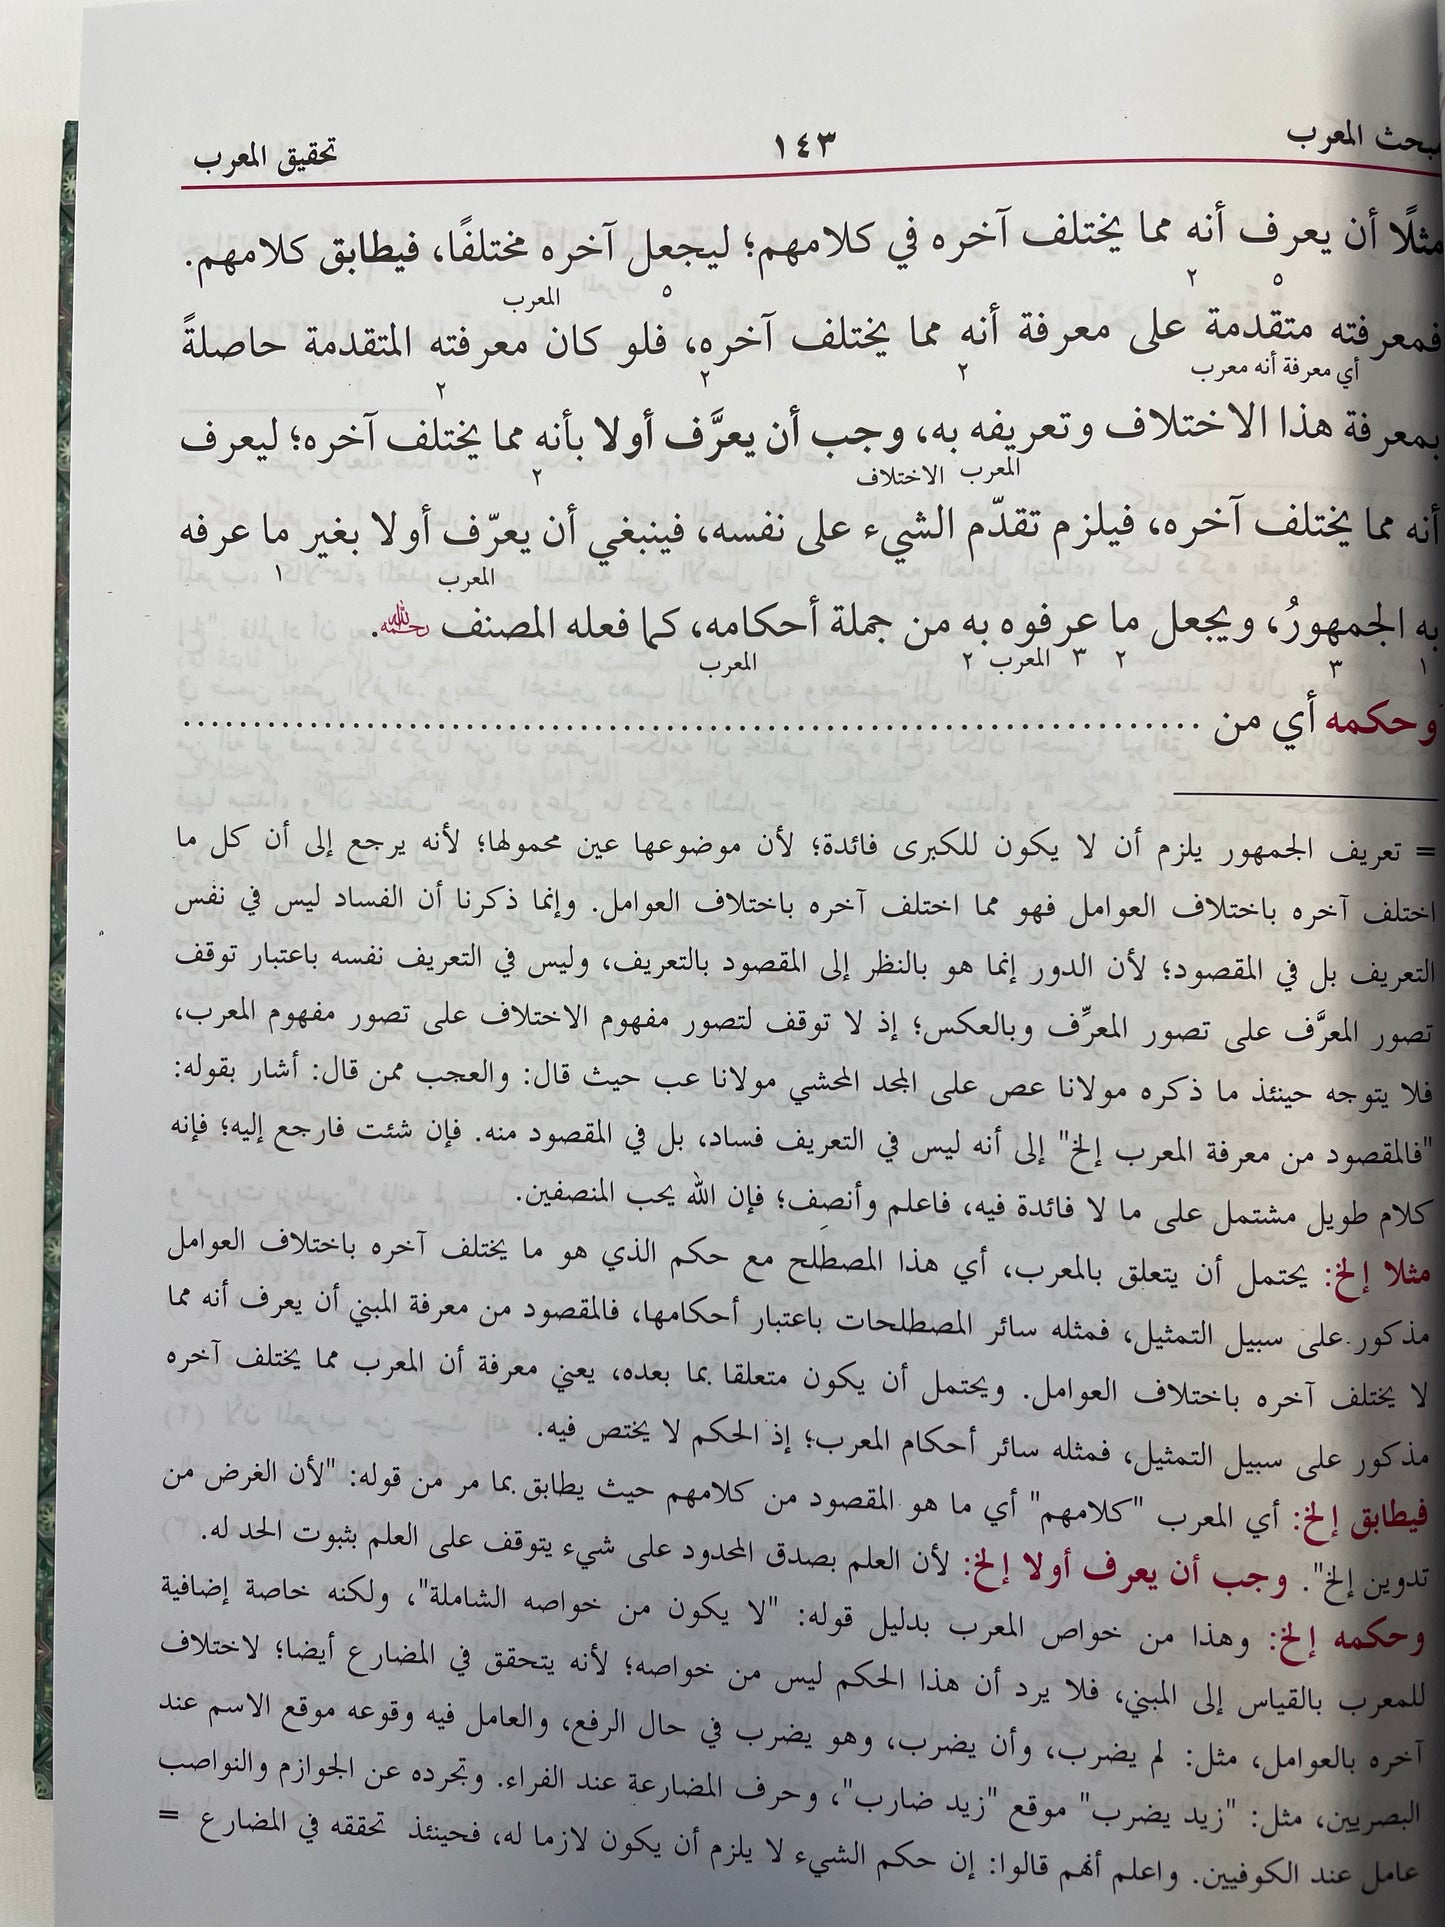 مبحث المعرب ١٤٣ تحقيق المعرب
مثلًا أن يعرف أنه مما يختلف آخره في كلامهم؛ ليجعل آخره مختلفًا، فيطابق كلامهم.
٥ ٢ ٥ المعرب
فمعرفته متقدمة على معرفة أنه مما يختلف آخره، فلو كان معرفته المتقدمة حاصلةً
أي معرفة أنه معرب ٢ ٢ ٢
بمعرفة هذا الاختلاف وتعريفه به، وجب أن يعرَّف أولا بأنه مما يختلف آخره؛ ليعرف
المعرب الاختلاف ٢
أنه مما يختلف آخره، فيلزم تقدّم الشيء على نفسه، فينبغي أن يعرّف أولا بغير ما عرفه
المعرب ١
به الجمهورُ، ويجعل ما عرفوه به من جملة أحكامه، كما فعله المصنف رحمه الله.
١ ٣ ٢ ٣ المعرب ٢ المعرب
وحكمه أي من ................................................................
= تعريف الجمهور يلزم أن لا يكون للكبرى فائدة؛ لأن موضوعها عين محمولها؛ لأنه يرجع إلى أن كل ما
اختلف آخره باختلاف العوامل فهو مما اختلف آخره باختلاف العوامل. وإنما ذكرنا أن الفساد ليس في نفس
التعريف بل في المقصود؛ لأن الدور إنما هو بالنظر إلى المقصود بالتعريف، وليس في التعريف نفسه باعتبار توقف
تصور المعرَّف على تصور المعرِّف وبالعكس؛ إذ لا توقف لتصور مفهوم الاختلاف على تصور مفهوم المعرب،
فلا يتوجه حينئذ ما ذكره مولانا عص على المجد المحشي مولانا عب حيث قال: والعجب ممن قال: أشار بقوله:
"فالمقصود من معرفة المعرب إلخ" إلى أنه ليس في التعريف فساد، بل في المقصود منه. فإن شئت فارجع إليه؛ فإنه
كلام طويل مشتمل على ما لا فائدة فيه، فاعلم وأنصِف؛ فإن الله يحب المنصفين.
مثلا إلخ: يحتمل أن يتعلق بالمعرب، أي هذا المصطلح مع حكم الذي هو ما يختلف آخره باختلاف العوامل
مذكور على سبيل التمثيل، فمثله سائر المصطلحات باعتبار أحكامها، فالمقصود من معرفة المبني أن يعرف أنه مما
لا يختلف آخره باختلاف العوامل. ويحتمل أن يكون متعلقا بما بعده، يعني معرفة أن المعرب مما يختلف آخره
مذكور على سبيل التمثيل، فمثله سائر أحكام المعرب؛ إذ الحكم لا يختص فيه.
فيطابق إلخ: أي المعرب "كلامهم" أي ما هو المقصود من كلامهم حيث يطابق بما مر من قوله: "لأن الغرض من
تدوين إلخ". وجب أن يعرف أولا إلخ: لأن العلم بصدق المحدود على شيء يتوقف على العلم بثبوت الحد له.
وحكمه إلخ: وهذا من خواص المعرب بدليل قوله: "لا يكون من خواصه الشاملة"، ولكنه خاصة إضافية
للمعرب بالقياس إلى المبني، فلا يرد أن هذا الحكم ليس من خواصه؛ لأنه يتحقق في المضارع أيضا؛ لاختلاف
آخره بالعوامل، مثل: لم يضرب، وأن يضرب، وهو يضرب في حال الرفع، والعامل فيه وقوعه موقع الاسم عند
البصريين، مثل: "زيد يضرب" موقع "زيد ضارب"، وحرف المضارعة عند الفراء. وتجرده عن الجوازم والنواصب
عامل عند الكوفيين. واعلم أنهم قالوا: إن حكم الشيء لا يلزم أن يكون لازما له، فحينئذ تحققه في المضارع =